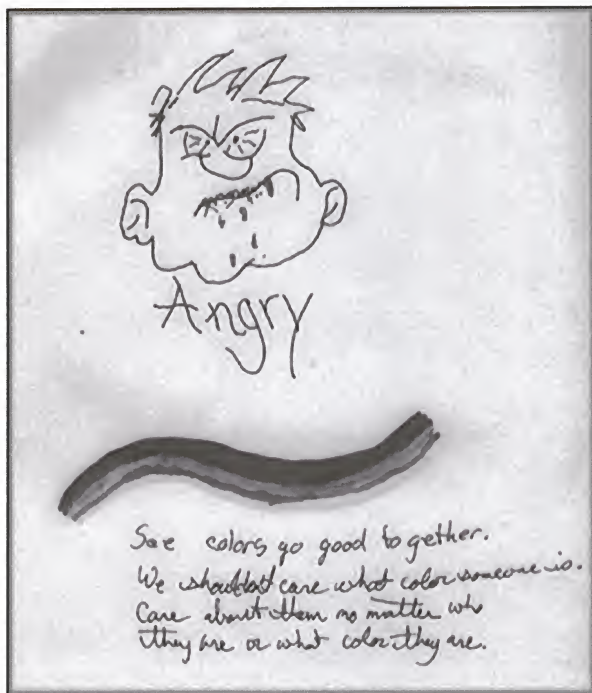 Angry
See colors go good together.
We shouldnt care what color someone is.
Care about them no matter who
they are or what color they are.